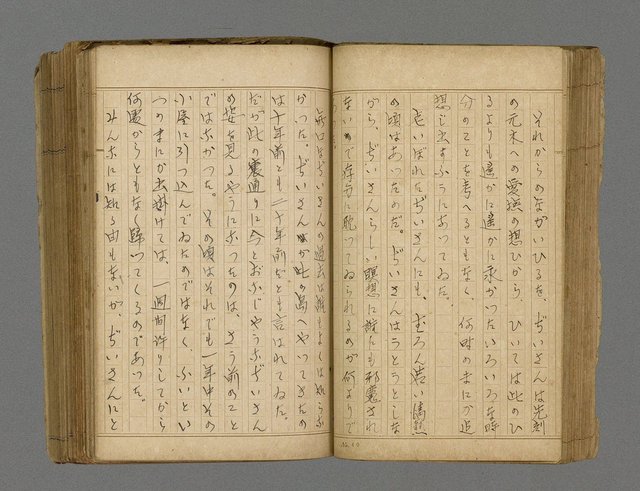 それからのながいひるを、ぢいさんは先刻
の元木への愛撫の想ひから、ひいては此のひ
るよりも遥かに遥かに永かつたいろいろな時
分のことを考へるともなく、何時のまにか追
想し出すふうにあつてゐた。
老いぼれたぢいさんにも、むろん若い情熱
の頃はあつたのだ。ぢいさんはうとうとしな
がら、ぢいさんらしい瞑想に誰にも邪魔され
ないので存分に耽つてゐられるのが何よりで
ぢいさんの過去は誰もよくは知らな
かつた。ぢいさんが此の島へやつてきたの
は十年前とも二十年前だとも言はれてゐた。
だが此の裏通りに今とおなじやうなぢいさん
の姿を見るやうになつたのは、さう前のこと
ではなかつた。その頃はそれでも一年中その
小屋に引つ込んでゐたのではなく、ふいとい
つのまにか出掛けては、一週間許りしてから
何処からともなく帰つてくるのであつた。
みんなには知る由もないが、ぢいさんにと
No. 40